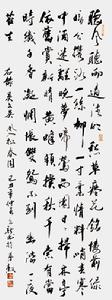 聽風聽雨過清明愁草瘞花銘樓前綠
暗分攜路一絲柳一寸柔情料峭春寒
中酒交加曉夢啼鶯西園日日掃林亭
依舊賞新晴黃蜂頻撲秋千索有當
時纖手香凝惆悵雙鴛不到幽階一夜
苔生
風入松春園